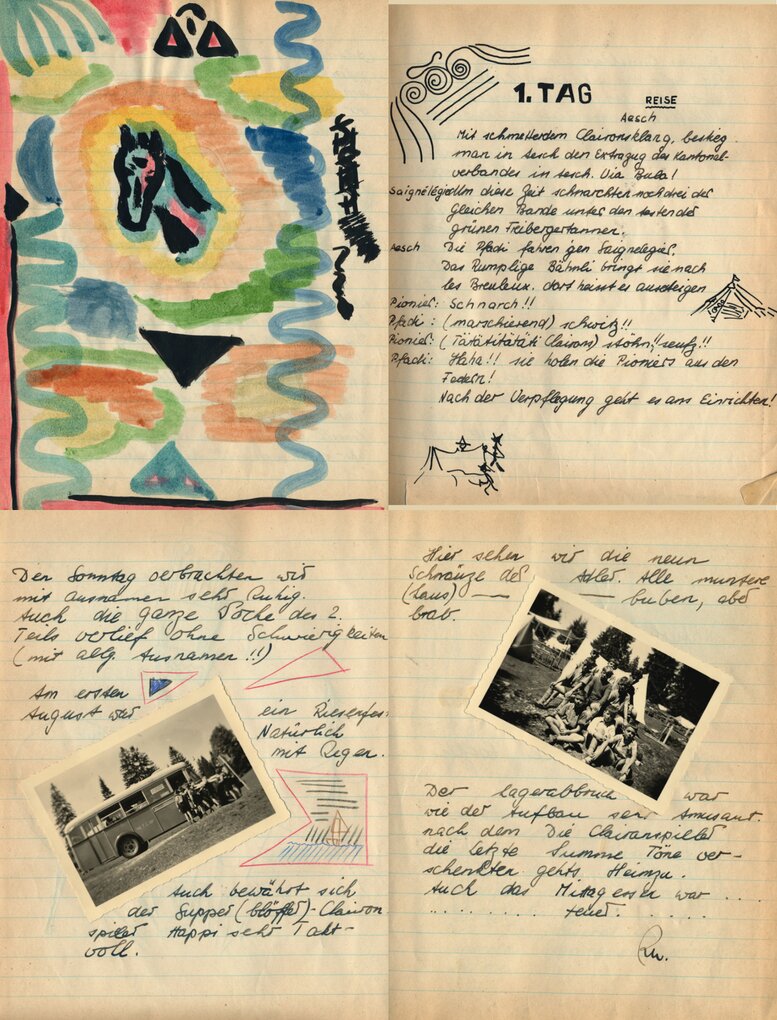 1. TAG REISE
Aesch
Mit schmetterdem Claironsklang, bestieg
man in Aesch den Extrazug des Kantonal-
verbandes in Aesch. Via Bula!
Saignélegier Um diese Zeit schnarchten noch drei der
gleichen Bande unter den
grünen Freibergertannen.
Aesch Die Pfadi fahren gen Saignelegier.
Das Rumplige Bähnli bringt sie nach
les Breuleux. dort heisst es aussteigen
Pionier: Schnarch!!
Pfadi: (marschierend) schwitz!!
Pionier: (Tätätitätäti Clairons) stöhn!! seufz!!
Pfadi: Haha!! sie holen die Pioniers aus den
Federn!
Nach der Verpflegung geht es ans Einrichten!
Den Sonntag verbrachten wir
mit ausnamen sehr Ruhig.
Auch die ganze Woche des 2.
Teils verlief ohne Schwierigkeiten
(mit allg. Ausnamen!!)
Am ersten
August war ein Riesenfest
Natürlich
mit Regen.
Auch bewährt sich
der Supper (blöffer)-Clairon
spieler Happi sehr Takt-
voll.
Hier sehen wir die neun
Schwänze der Adler. Alle muntere
(Laus) — — buben, aber
brav.
Der Lagerabbruch war
wie der Aufbau sehr Amüsant.
nach dem Die Claironspieler
die letzte Summe Töne ver-
schenkten gehts Heimzu.
Auch das Mittagessen war ....
......... teuer. .....